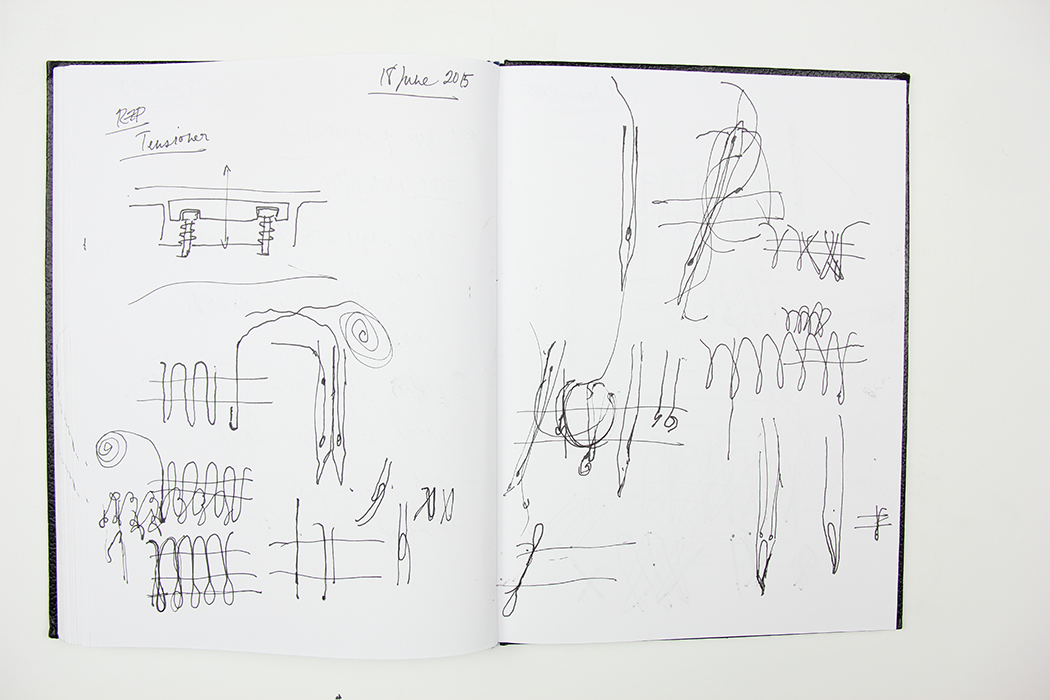 18 June 2015
Tensioner